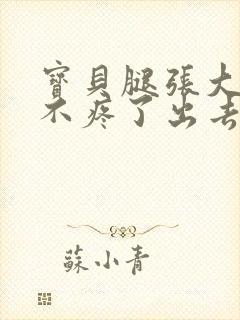 寶貝腿張大
不疼了出去
蘇小青